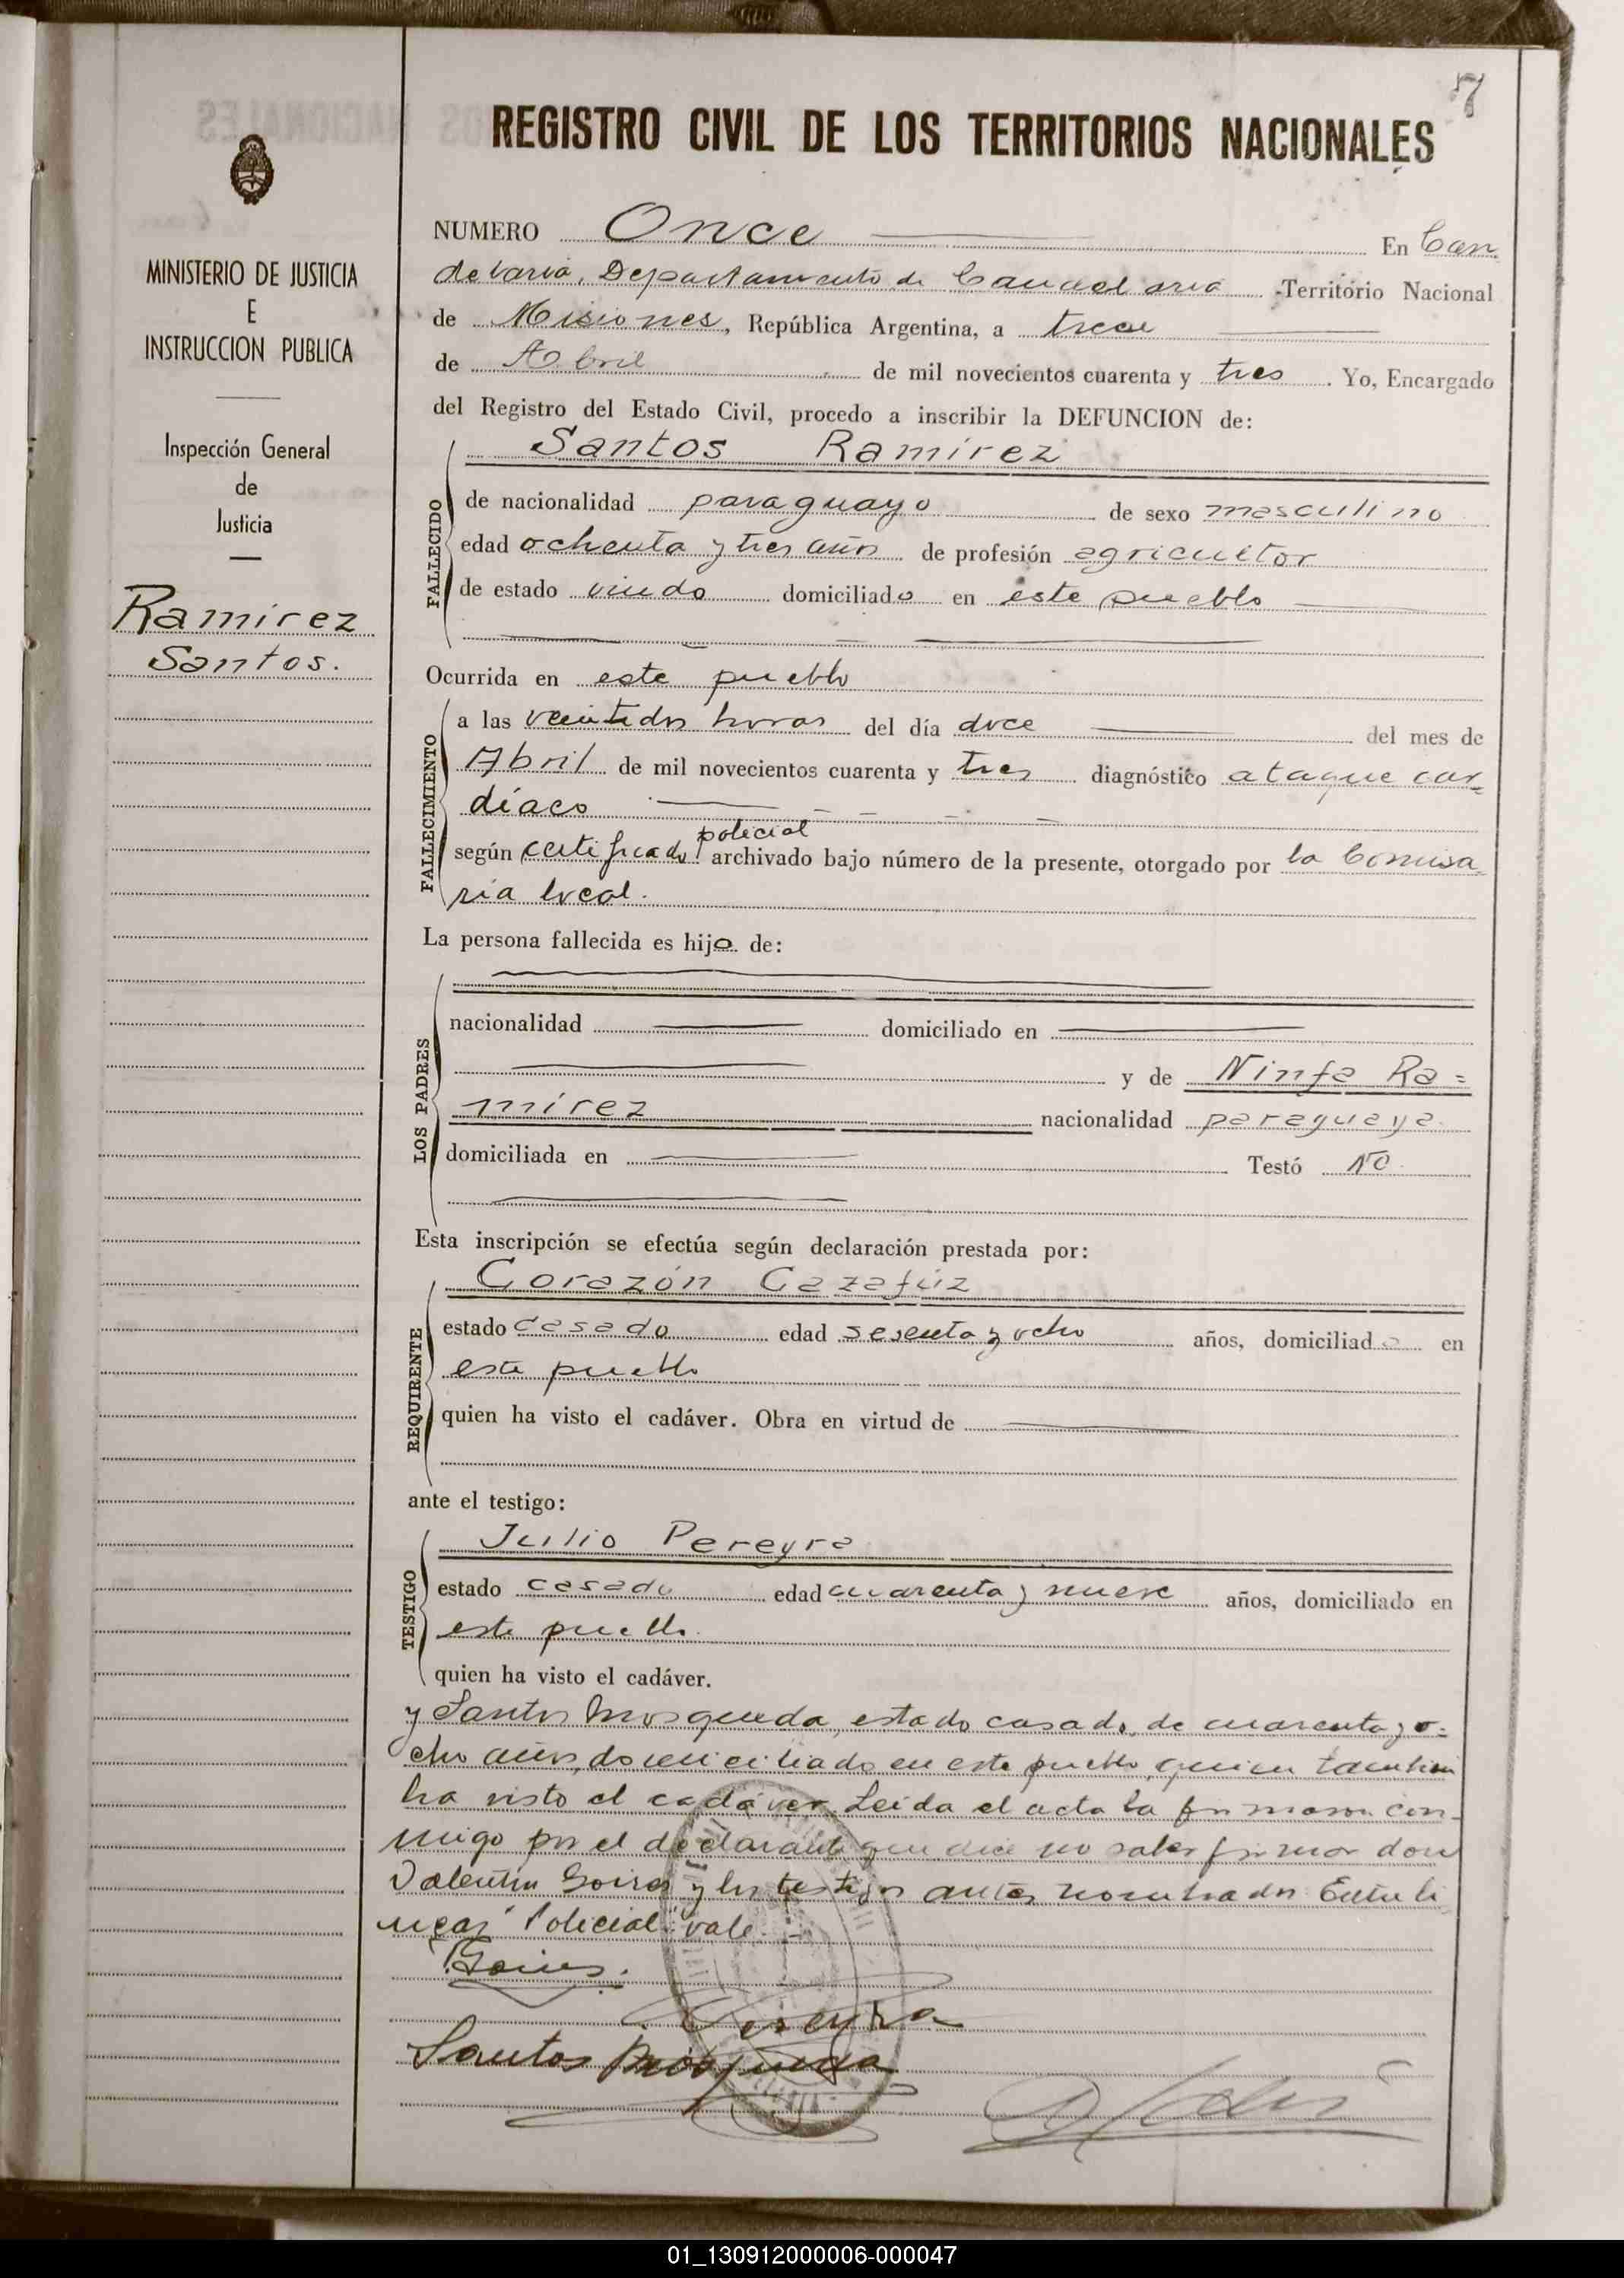 7
REGISTRO CIVIL DE LOS TERRITORIOS NACIONALES
MINISTERIO DE JUSTICIA
E
INSTRUCCION PUBLICA
Inspección General
de
Justicia
Ramirez
Santos.
NUMERO Once En Can
delaria, Departamento de Candelaria Territorio Nacional
de Misiones, República Argentina, a trece
de Abril de mil novecientos cuarenta y tres. Yo, Encargado
del Registro del Estado Civil, procedo a inscribir la DEFUNCION de:
Santos Ramírez
FALLECIDO
de nacionalidad paraguayo de sexo masculino
edad ochenta y tres años de profesión agricultor
de estado viudo domiciliado en este pueblo
Ocurrida en este pueblo
FALLECIMIENTO
a las veintidos horas del día doce del mes de
Abril de mil novecientos cuarenta y tres diagnóstico ataque car-
díaco
policial
según certificado archivado bajo número de la presente, otorgado por la Comisa-
ria local.
La persona fallecida es hijo de:
LOS PADRES
nacionalidad domiciliado en
y de Ninfa Ra=
mírez nacionalidad paraguaya.
domiciliada en Testó No.
Esta inscripción se efectúa según declaración prestada por:
Corazón Cazafúz
REQUIRENTE
estado casado edad sesenta y ocho años, domiciliado en
este pueblo
quien ha visto el cadáver. Obra en virtud de
ante el testigo:
Julio Pereyra
TESTIGO
estado casado edad cuarenta y nueve años, domiciliado en
este pueblo.
quien ha visto el cadáver.
y Santos Mosqueda, estado casado, de cuarenta y o-
cho años, domiciliado en este pueblo, quien tambien
ha visto el cadáver. Leida el acta la firmaron con-
migo por el declarante que dice no saber firmar don
Valentin y los testigos antes nombrados. Entreli
neas "Policial" vale.
Pereyra
Santos Mosqueda
01_130912000006-000047